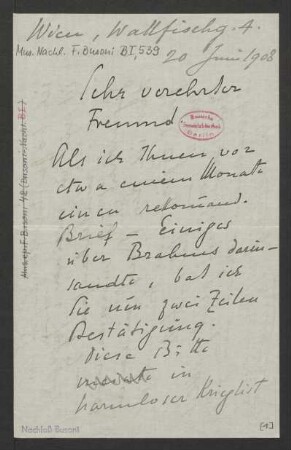 Wien, Wallfischg. 4.
Mus. Nachl. F. Busoni BI, 539
20 Juni 1908
Sehr verehrter
Freund
Als ich Ihnen vor
etwa einem Monate
einen rekomand.
Brief – Einiges
über Brahms darin-
sandte, bat ich
Sie um zwei Zeilen
Bestätigung.
Diese Bitte
in
harmloser Krieglist
Nachlaß Busoni
[1]